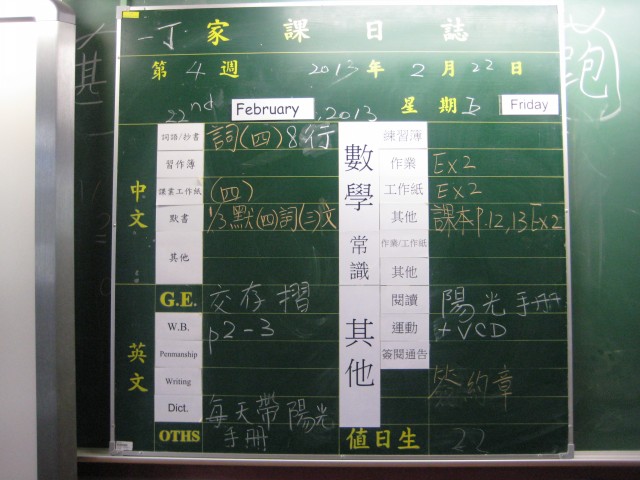 一丁 家課日誌
第 4 週 2013 年 2 月 22 日
22nd February, 2013 星期五 Friday
中文
詞語/抄書 詞(四)8行
習作簿
課業工作紙 (四)
默書 1/3默(四)詞(三)文
其他
G.E. 交存摺
英文
W.B. p2-3
Penmanship
Writing
Dict. 每天帶陽光
OTHS 手冊
數學
練習簿
作業 Ex2
工作紙 Ex2
其他 課本P.12,13 Ex2
常識
作業/工作紙
其他
其他
閱讀 陽光手冊
運動 +VCD
簽閱通告
簽約章
值日生 22